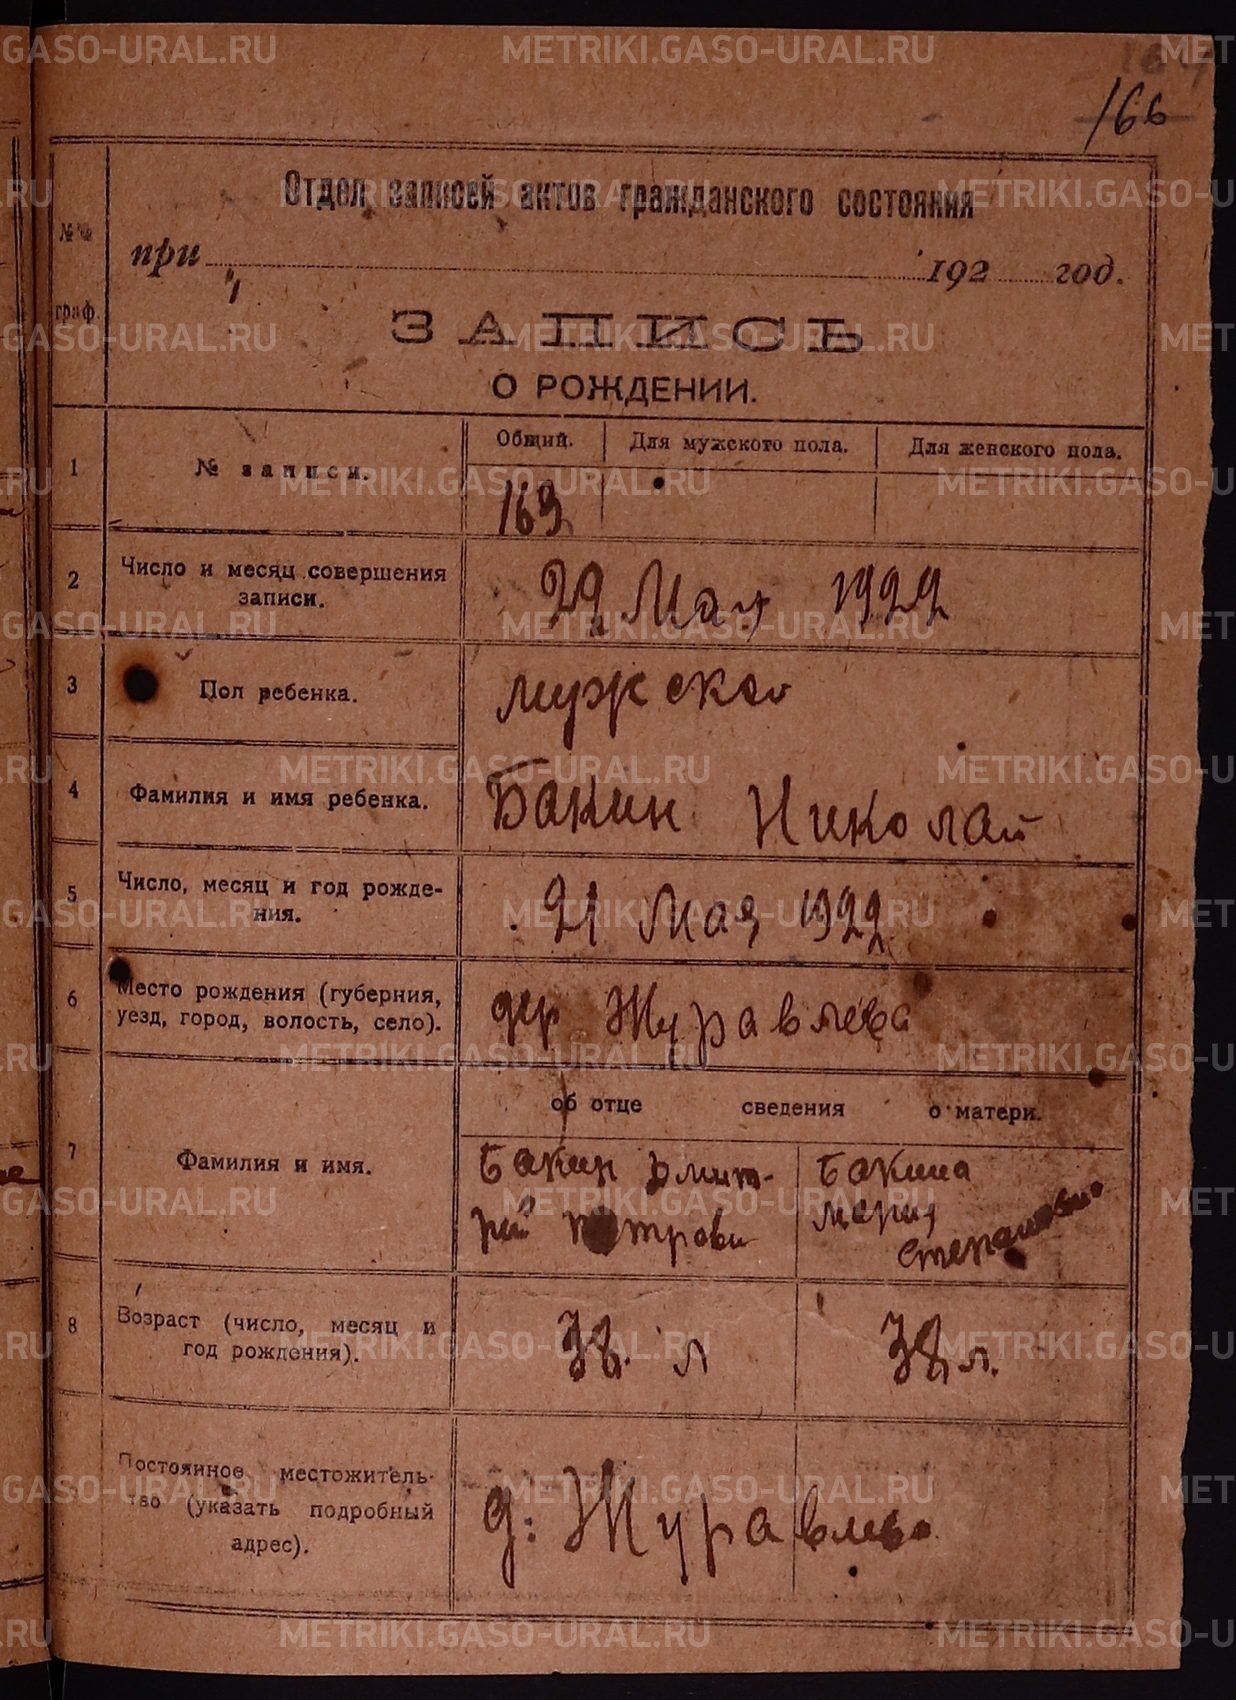 166
Отдел записей актов гражданского состояния
№№ граф.
при 192 год.
ЗАПИСЬ
О РОЖДЕНИИ.
1 № записи. Общий. Для мужского пола. Для женского пола.
169
2 Число и месяц совершения
записи.
29 Мая 1922
3 Пол ребенка.
мужской
4 Фамилия и имя ребенка.
Бакин Николай
5 Число, месяц и год рожде-
ния.
21 Мая 1922
6 Место рождения (губерния,
уезд, город, волость, село).
дер Журавлева
об отце сведения о матери.
7 Фамилия и имя.
Бакин Дмит-
рий Петрови
Бакина
Мария
Степановна
8 Возраст (число, месяц и
год рождения).
38 л
38 л.
Постоянное местожитель-
тво (указать подробный
адрес).
д: Журавлева
METRIKI.GASO-URAL.RU